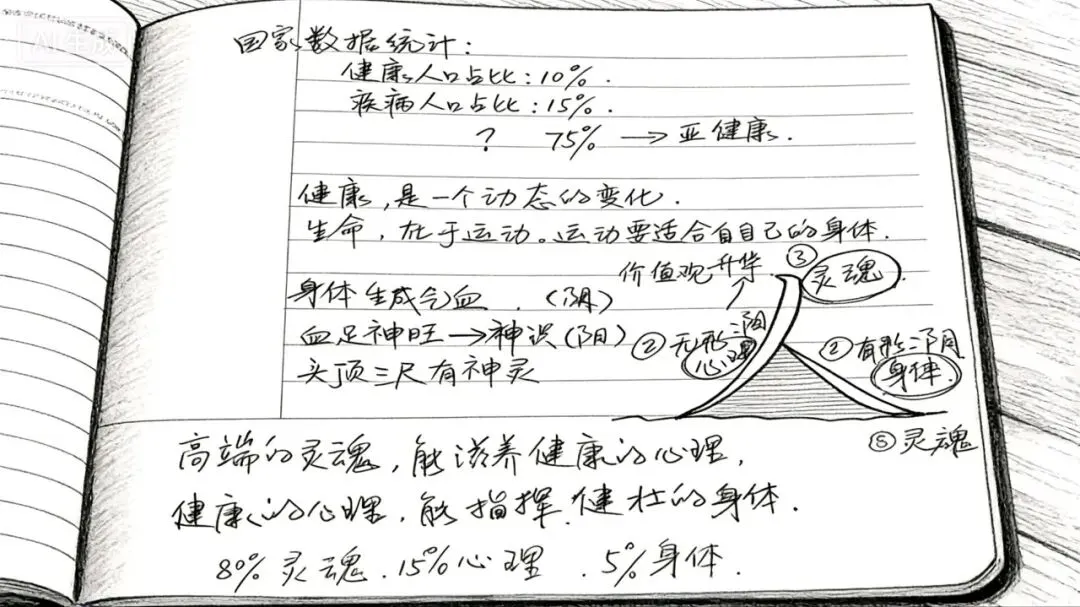 国家数据统计:
健康人口占比:10%.
疾病人口占比:15%.
? 75% → 亚健康.
健康,是一个动态的变化.
生命,在于运动。运动要适合自自己的身体.
身体生成气血 .(阴)
血足神旺→神识(阳)
头顶三尺有神灵
价值观升华
③ 灵魂
② 无形:阳
心理
② 有形:阴
身体.
⑧灵魂
高端的灵魂,能滋养健康的心理,
健康的心理,能指挥.健壮的身体.
80% 灵魂.15%心理 .5%身体.